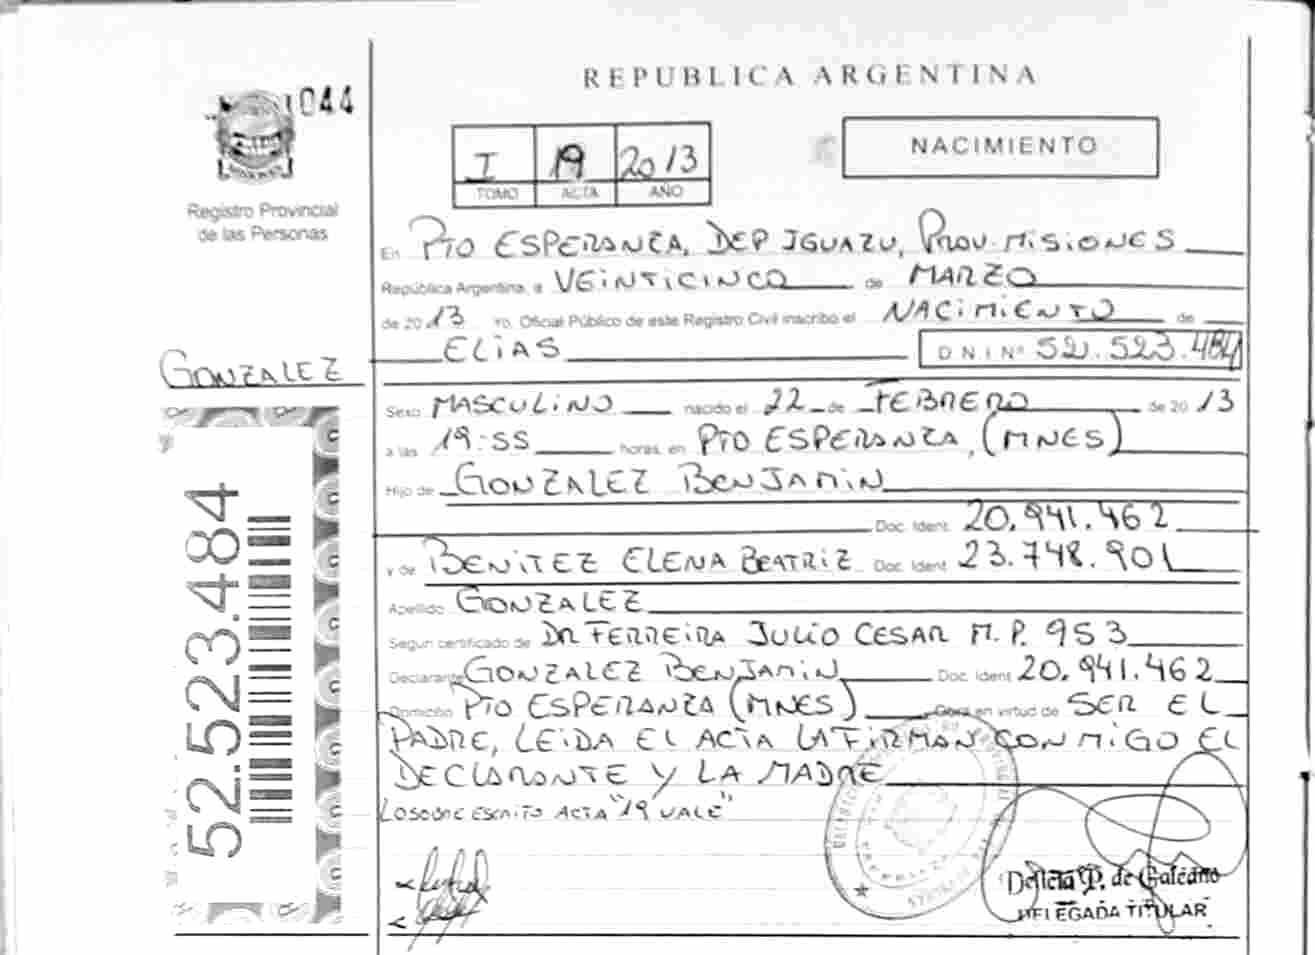 REPUBLICA ARGENTINA
1044
I 19 2013
TOMO ACTA AÑO
NACIMIENTO
Registro Provincial
de las Personas
En PTO ESPERANZA, DEP IGUAZU, PROV. MISIONES
República Argentina, a VEINTICINCO de MARZO
de 2013 Yo, Oficial Público de este Registro Civil inscribo el NACIMIENTO de
ELIAS D N I Nº 52.523.484
GONZALEZ
Sexo MASCULINO nacido el 22 de FEBRERO de 2013
a las 19:55 horas, en PTO ESPERANZA, (MNES)
Hijo de GONZALEZ BENJAMIN
Doc. Ident. 20.941.462
y de BENITEZ ELENA BEATRIZ Doc. Ident. 23.748.901
Apellido GONZALEZ
Según certificado de DR FERREIRA JULIO CESAR M.P. 953
Declarante GONZALEZ BENJAMIN Doc. Ident. 20.941.462
Domicilio PTO ESPERANZA (MNES) Obra en virtud de SER EL
PADRE, LEIDA EL ACTA LA FIRMAN CONMIGO EL
DECLARANTE Y LA MADRE
LO SOBRE ESCRITO ACTA "19 VALE"
52.523.484
P. de Galeano
DELEGADA TITULAR